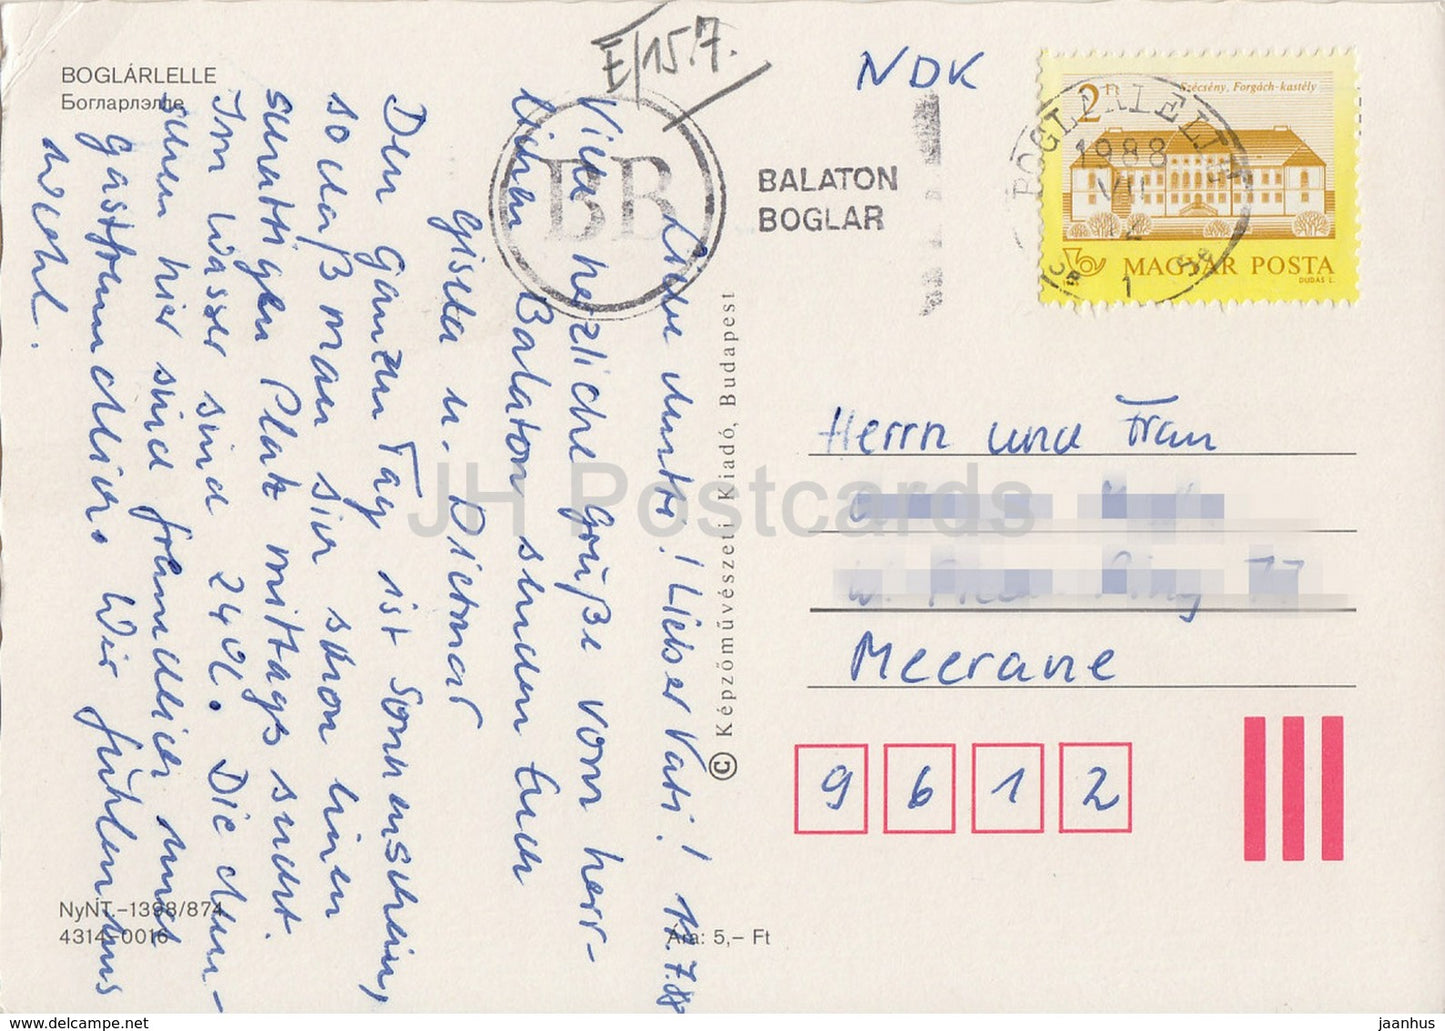 BOGLÁRLELLE
Богларлэлле
E/15.7.
NDK
BB
BALATON
BOGLAR
BOGLÁRLELLE
1988
VII
1
2 Ft
Szécsény, Forgách-kastély
MAGYAR POSTA
DUDÁS L.
Liebe Mutti! Lieber Vati! 11.7.88
Viele herzliche Grüße vom herr-
lichen Balaton senden Euch
Gisela u. Dietmar
Den ganzen Tag ist Sonnenschein,
so daß man sich schon einen
schattigen Platz mittags sucht.
Im Wasser sind 24°C. Die Men-
schen hier sind freundlich und
gastfreundlich. Wir fühlen uns
wohl.
© Képzőművészeti Kiadó, Budapest
Herrn und Frau
Meerane
9612
NyNT.–1398/874
4314–0016
Ára: 5,– Ft
JH Postcards
www.delcampe.net
jaanhus